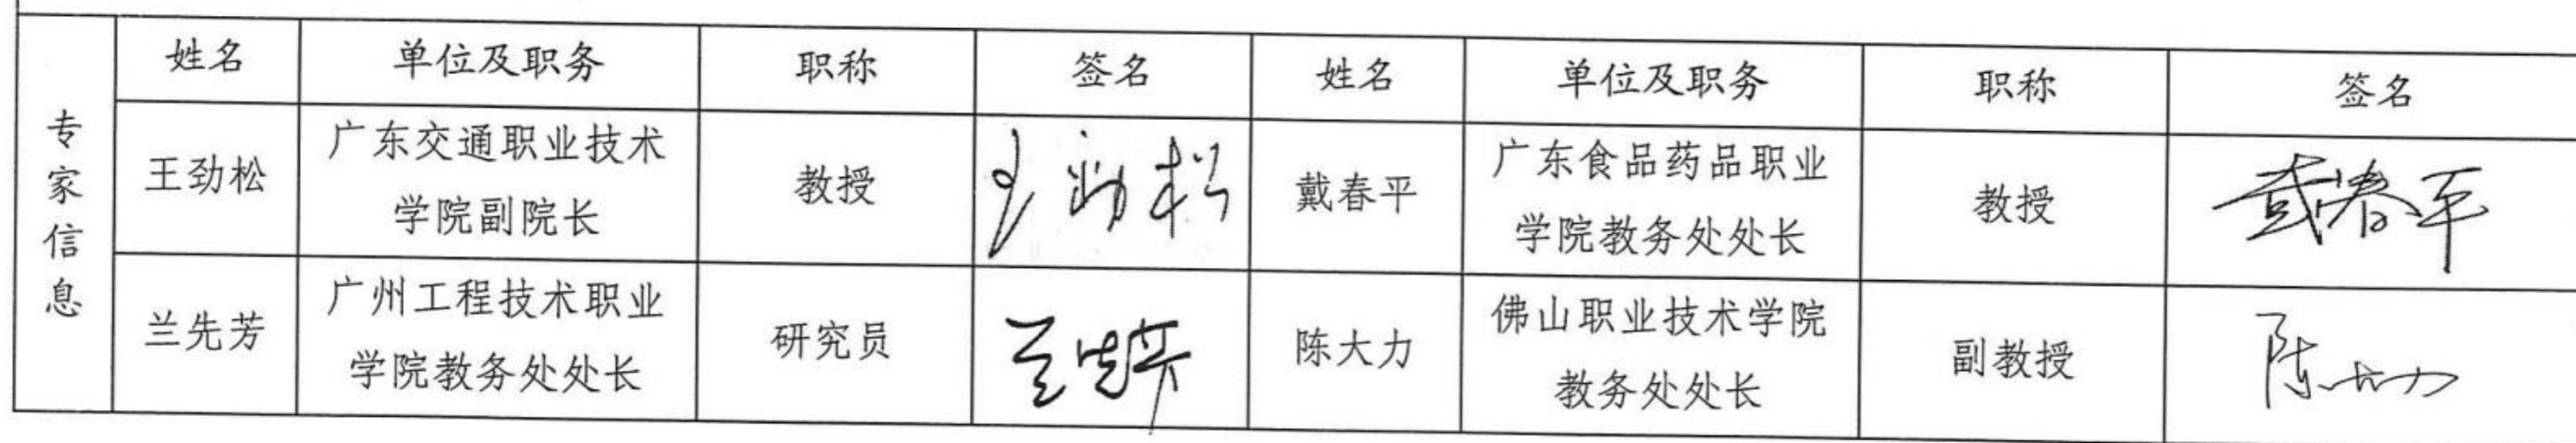 专家信息
姓名 单位及职务 职称 签名 姓名 单位及职务 职称 签名
王劲松 广东交通职业技术学院副院长 教授 王劲松 戴春平 广东食品药品职业学院教务处处长 教授 戴春平
兰先芳 广州工程技术职业学院教务处处长 研究员 兰先芳 陈大力 佛山职业技术学院教务处处长 副教授 陈大力